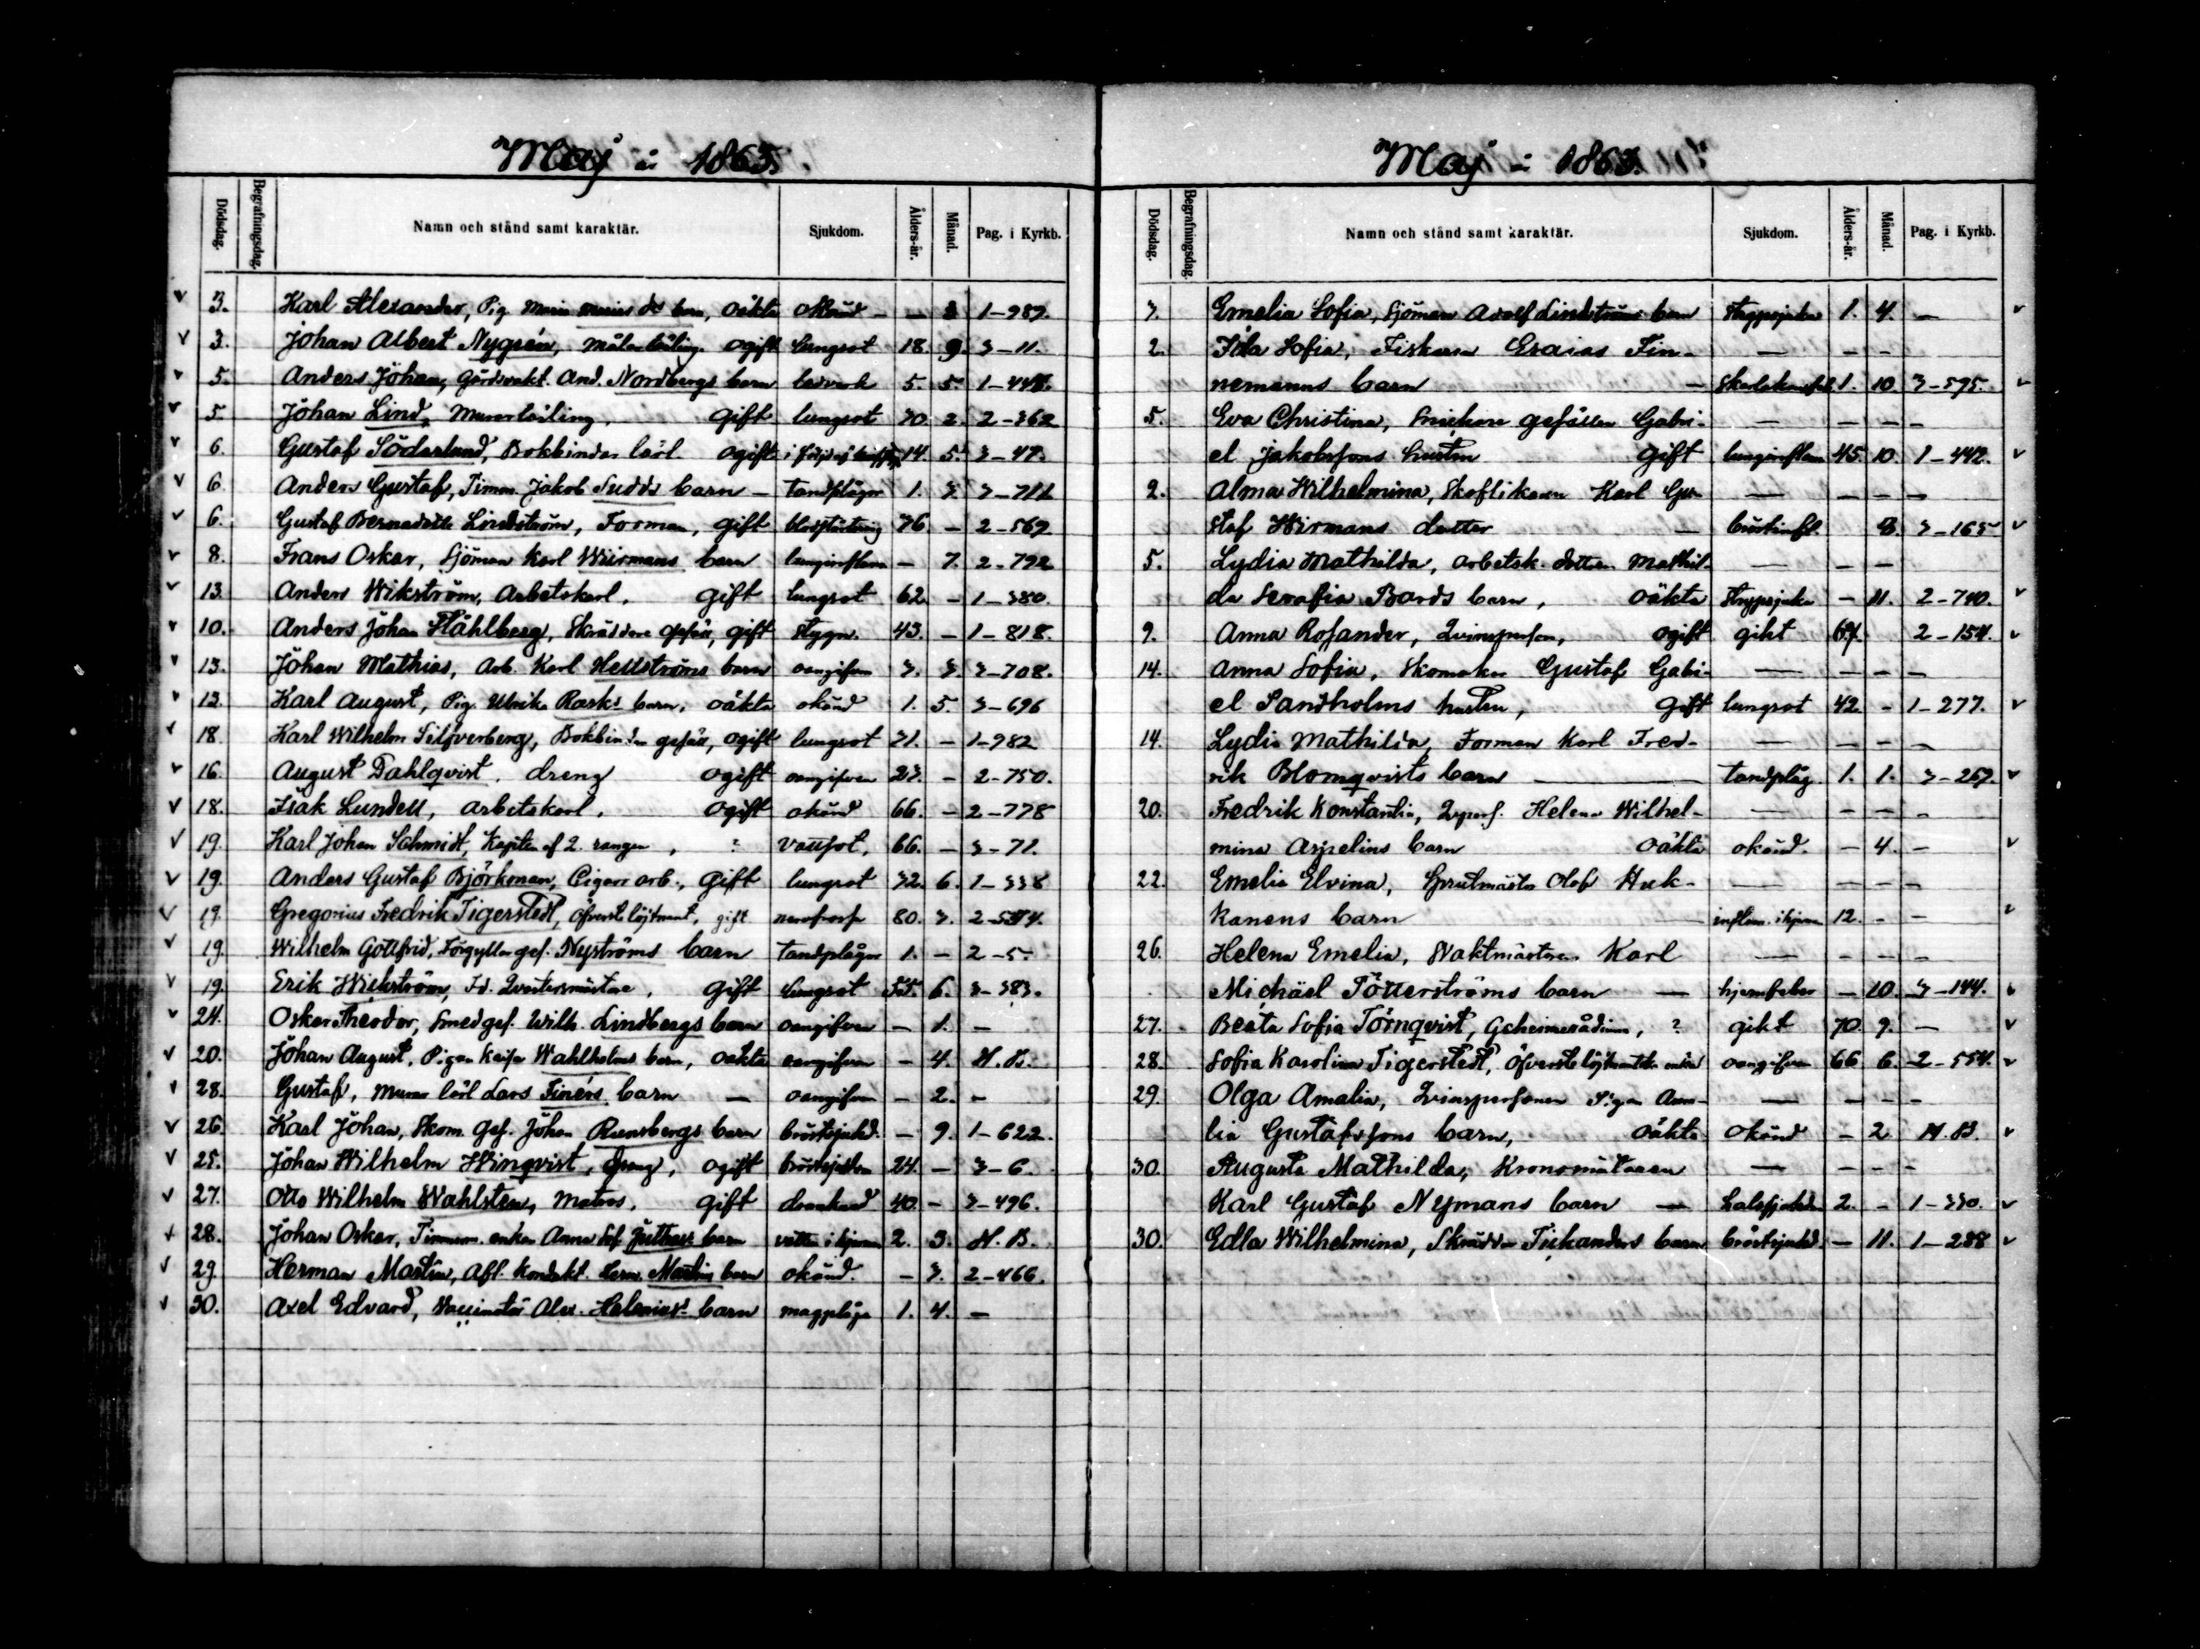 Maj å 1863.
Dödsdag. Begrafningsdag. Namn och stånd samt karaktär. Sjukdom. Ålders-år. Månad. Pag. i Kyrkb.
3. Karl Alexander, Pig. Maria barn, oäkta okänd — — 1-989.
3. Johan Albert Nygrén, Målarlärling. ogift lungsot 18. 9. 3-11.
5. Anders Johan, Gårdsvakt. And. Nordbergs barn 5. 5. 1-448.
5. Johan Lind, Murarlärling. gift lungsot 30. 2. 2-362
6. Gustaf Söderlund, Bokbindar lärl ogift 14. 5. 3-47.
6. Anders Gustaf, Timm. Jakob Sudds barn — tandplågor 1. 3. 3-711
6. Gustaf Bernadotte Lindström, Forman, gift blodstörtning 36. — 2-569.
8. Frans Oskar, Sjöman Karl Wiirmans barn lunginflam — 7. 2-792
13. Anders Wikström, Arbetskarl. gift lungsot 62. — 1-380.
10. Anders Johan Ståhlberg, Skräddare gesäll, gift stygn. 43. — 1-818.
13. Johan Mathias, Arb. Karl Hellströms barn oangifven 3. 3. 3-708.
12. Karl August, Pig. Ulrika Rask's barn, oäkta okänd 1. 5. 3-696
18. Karl Wilhelm Silfverberg, Bokbindar gesäll, ogift lungsot 31. — 1-982
16. August Dahlqvist, dreng ogift oangifven 23. — 2-750.
18. Isak Lundell, arbetskarl. ogift okänd 66. — 2-778
19. Karl Johan Schmidt, Kapten af 2. rangen, ? vattsot, 66. — 3-71.
19. Anders Gustaf Björkman, Cigarr arb., Gift lungsot 32. 6. 1-338
19. Gregorius Fredrik Tigerstedt, Öfverste löjtnant, gift 80. 3. 2-554.
19. Wilhelm Gottfrid, Förgyllar ges. Nyströms barn tandplågor 1. — 2-5.
19. Erik Wickström, Fd. Qvartersmästare, gift lungsot 55. 6. 3-383.
24. Oskar Theodor, Smedges. Wilh. Lindbergs barn oangifven — 1. —
20. Johan August, Pigan Kajsa Wahlholms barn, oäkta oangifven — 4. N.B.
28. Gustaf, Murar lärl Lars Finérs barn — oangifven — 2. —
26. Karl Johan, Skom. Ges. Johan Runsbergs barn bröstsjukd. — 9. 1-622.
25. Johan Wilhelm Winqvist, dreng, ogift bröstsjukdom 24. — 3-6.
27. Otto Wilhelm Wahlsten, Matros. gift drunknad 40. — 3-496.
28. Johan Oskar, Timmerm. enkan Anna Sof barn vatten i hjernan 2. 3. N.B.
29. Herman Martin, Afl. Kondukt. Herm. Martins barn okänd. — 3. 2-466.
30. Axel Edvard, Alex. Helenius' barn magplåga 1. 4. —
Maj å 1863.
Dödsdag. Begrafningsdag. Namn och stånd samt karaktär. Sjukdom. Ålders-år. Månad. Pag. i Kyrkb.
3. Emelia Sofia, Sjöman Adolf Lindströms barn strypsjuka 1. 4. —
2. Ida Sofia, Fiskaren Esaias Fin- — — —
nemanns barn — Skarlakansfeb 1. 10. 3-595.
5. Eva Christina, Snickare gesällen Gabri- — — — —
el Jakobssons hustru gift lunginflam 45. 10. 1-442.
2. Alma Wilhelmina, Karl Gu- — — — —
staf Wirmans dotter — bröstinfl. 8. 3-165
5. Lydia Mathilda, Arbetsk. dottern Mathil- — — —
da Serafia Bards barn, oäkta Strypsjuka — 11. 2-740.
9. Anna Rosander, Qvinsperson, ogift gikt 67. 2-154.
14. Anna Sofia, Skomakar Gustaf Gabri- — — — —
el Sandholms hustru, Gift lungsot 42. — 1-277.
14. Lydia Mathilda, Forman Karl Fred- — — — —
rik Blomqvists barn — tandplåg. 1. 1. 3-267.
20. Fredrik Konstantin, Qvpers. Helena Wilhel- — — — —
mina Aspelins barn oäkta okänd. — 4. —
22. Emelia Elvina, Sprutmästar Olof Huk- — — — —
kanens barn — inflam. i hjernan 12. — —
26. Helena Emelia, Vaktmästaren Karl — — — —
Michäel Tötterströms barn — hjernfeber — 10. 3-144.
27. Beata Sofia Törnqvist, Geheimerådinna, ? gikt 70. 9. —
28. Sofia Karolina Tigerstedt, Öfverste löjtnants enka oangifven 66. 6. 2-554.
29. Olga Amalia, Qvinspersonen Pigan Ama- — — — —
lia Gustafssons barn, oäkta okänd — 2 N.B.
30. Augusta Mathilda, Kronomätaren — — — —
Karl Gustaf Nymans barn — halssjukdom 2. — 1-330.
30. Edla Wilhelmina, Skräddar Tickanders barn bröstsjukd. — 11. 1-288